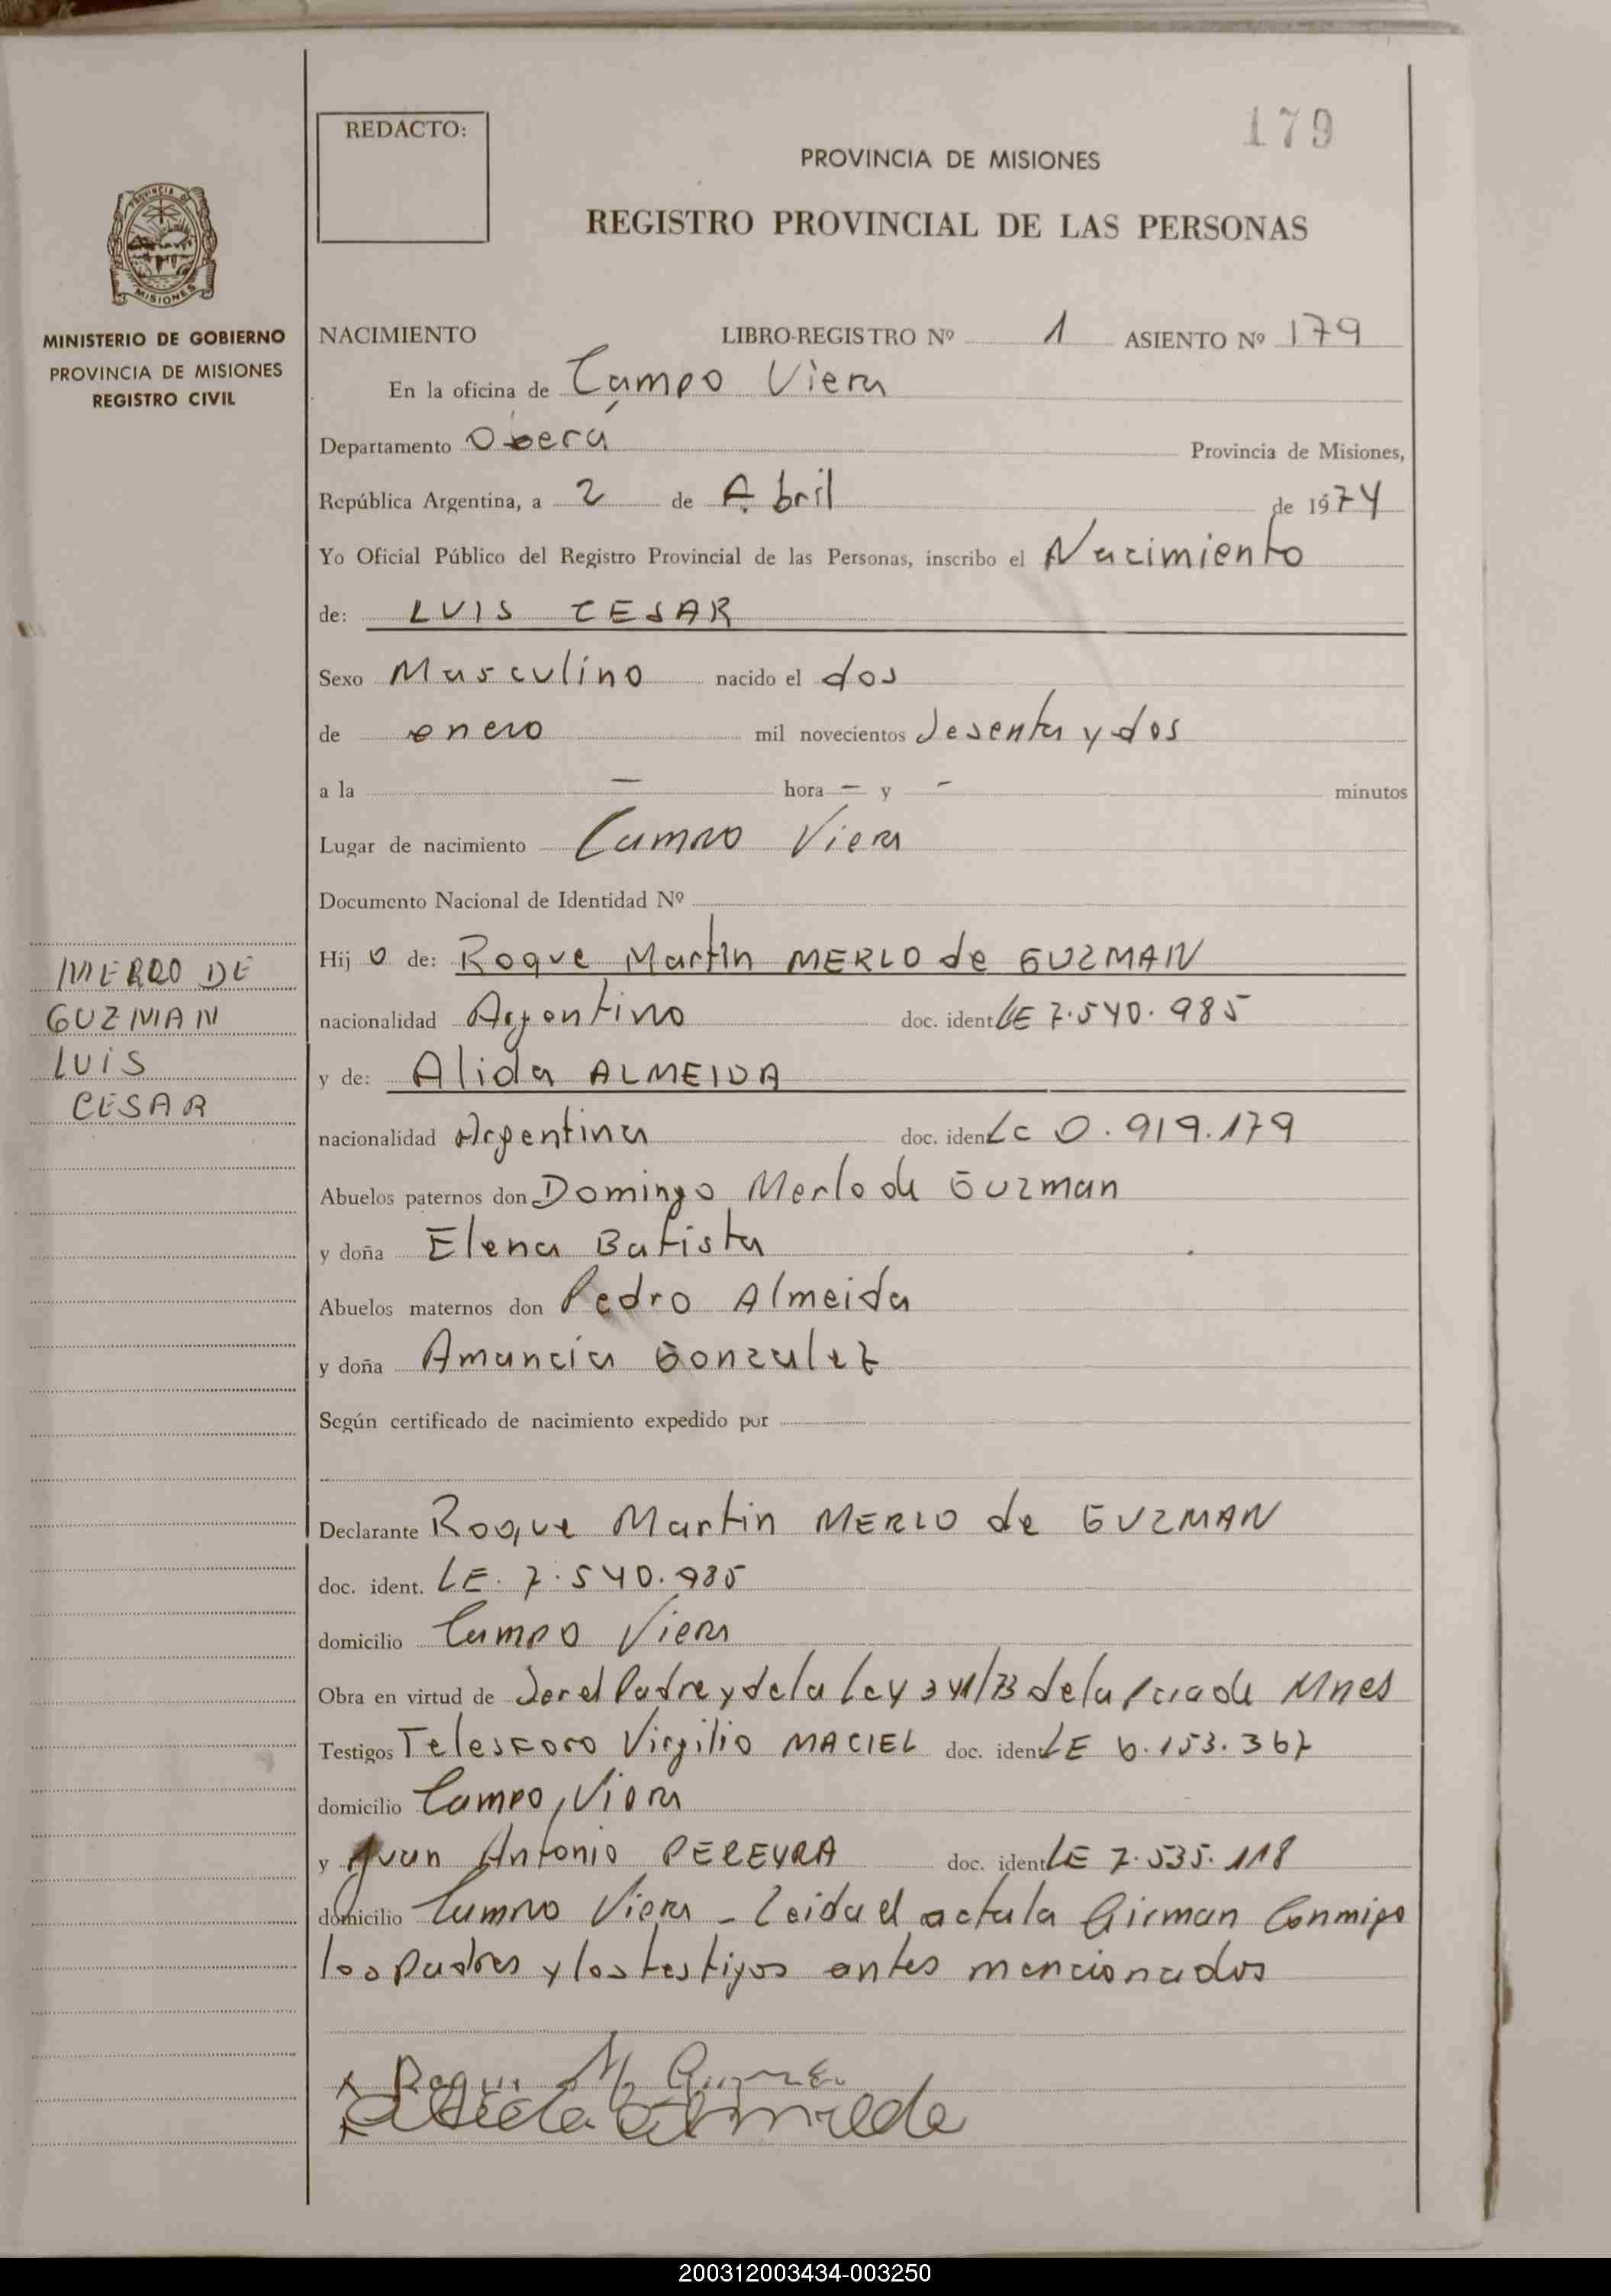 179
REDACTO:
PROVINCIA DE MISIONES
REGISTRO PROVINCIAL DE LAS PERSONAS
PROVINCIA DE
MISIONES
MINISTERIO DE GOBIERNO
PROVINCIA DE MISIONES
REGISTRO CIVIL
NACIMIENTO LIBRO-REGISTRO Nº 1 ASIENTO Nº 179
En la oficina de Campo Viera
Departamento Oberá Provincia de Misiones,
República Argentina, a 2 de Abril de 1974
Yo Oficial Público del Registro Provincial de las Personas, inscribo el Nacimiento
de: LUIS CESAR
Sexo Masculino nacido el dos
de enero mil novecientos sesenta y dos
a la — hora — y - minutos
Lugar de nacimiento Campo Viera
Documento Nacional de Identidad Nº
Hij o de: Roque Martin MERLO de GUZMAN
nacionalidad Argentino doc. ident LE 7.540.985
y de: Alida ALMEIDA
nacionalidad Argentina doc. iden LC 0.919.179
Abuelos paternos don Domingo Merlo de Guzman
y doña Elena Batista
Abuelos maternos don Pedro Almeida
y doña Amancia Gonzalez
Según certificado de nacimiento expedido por
MERLO DE
GUZMAN
LUIS
CESAR
Declarante Roque Martin MERLO de GUZMAN
doc. ident. LE. 7.540.985
domicilio Campo Viera
Obra en virtud de Ser el Padre y de la Ley 341/73 de la Pcia de Mnes
Testigos Telesforo Virgilio MACIEL doc. iden LE 6.153.367
domicilio Campo Viera
y Juan Antonio PEREYRA doc. ident LE 7.535.118
domicilio Campo Viera - Leida el acta la Girman Conmigo
los Padres y los testigos antes mencionados
x Roque M Guzman
x Alida Almeida
200312003434-003250